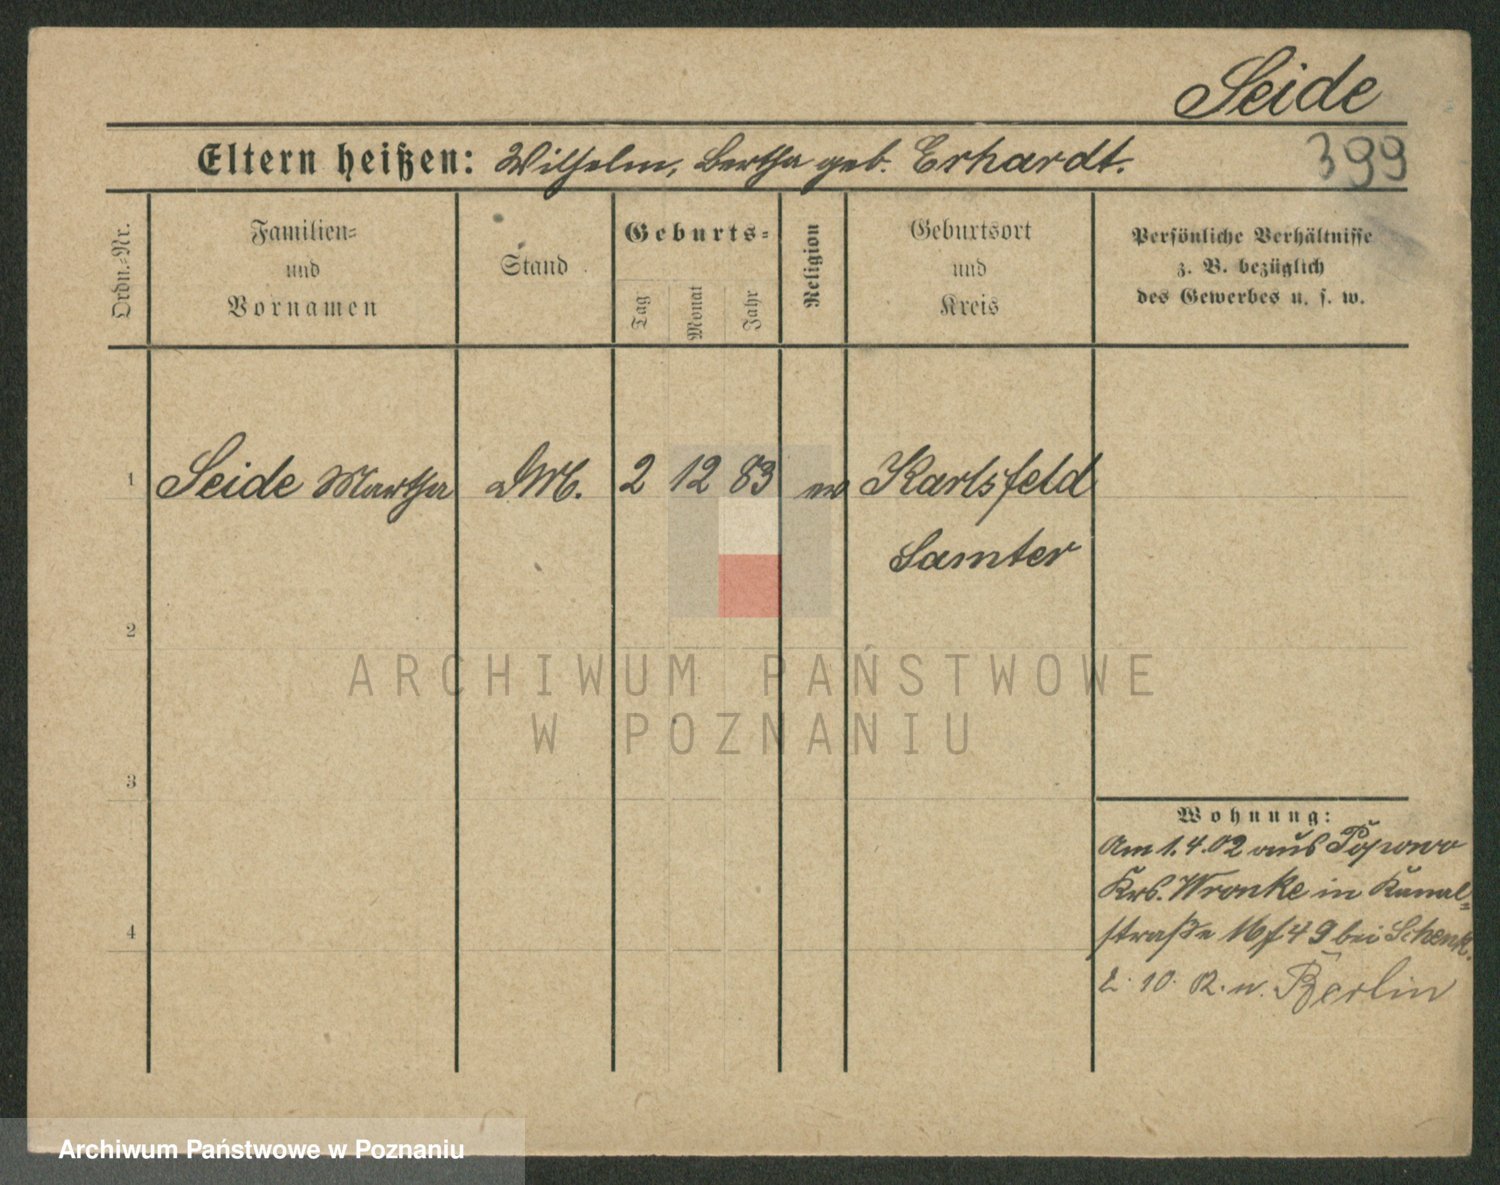 Seide
Eltern heißen: Wilhelm, Bertha geb. Erhardt.
399
Ordn.-Nr.
Familien-
und
Vornamen
Stand
Geburts-
Tag
Monat
Jahr
Religion
Geburtsort
und
Kreis
Persönliche Verhältnisse
z. B. bezüglich
des Gewerbes u. s. w.
1 Seide Martha DM. 2 12 83 ev Karlsfeld
Samter
2
3
4
ARCHIWUM PAŃSTWOWE
W POZNANIU
Wohnung:
Am 1.4.02 aus Popowo
Krs. Wronke in Kanal-
straße 16 49 bei Schenk.
2. 10. R. n. Berlin
Archiwum Państwowe w Poznaniu